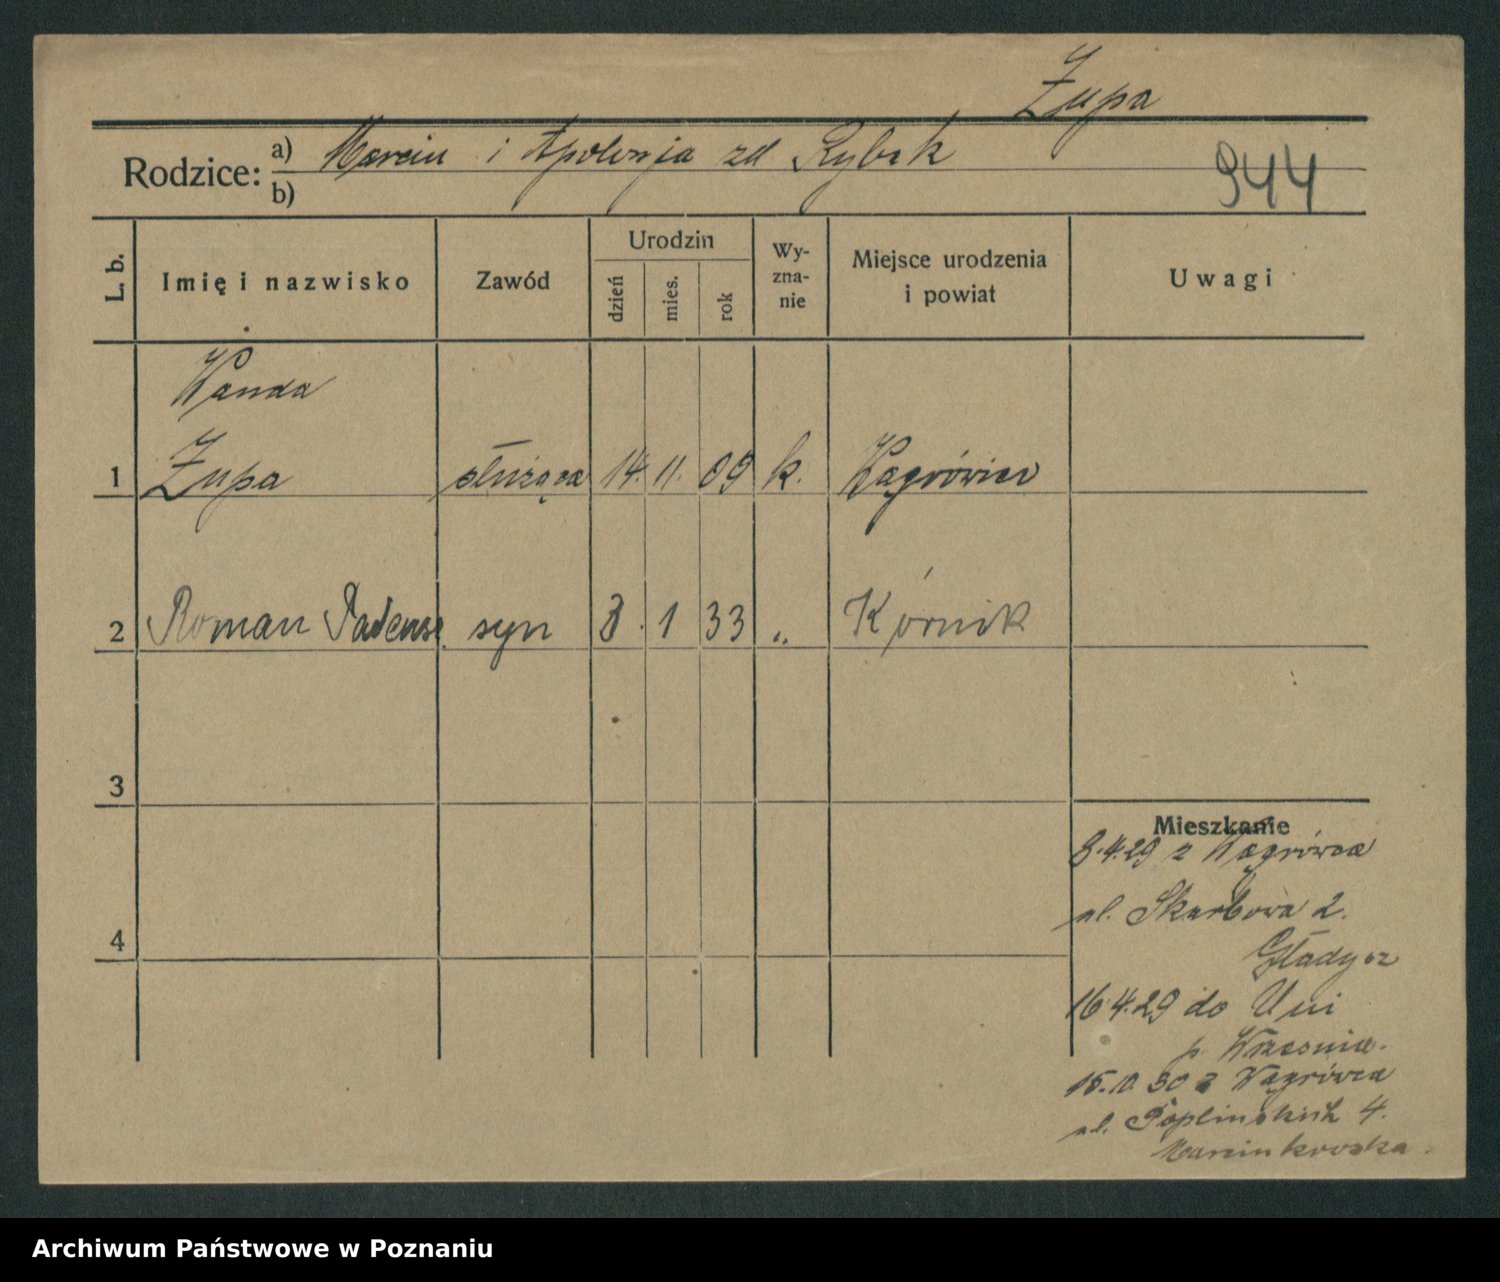 Żupa
Rodzice: a) Marcin i Apolonja zd. Rybak
b)
944
L. b.
Imię i nazwisko
Zawód
Urodzin
dzień
mies.
rok
Wy-
zna-
nie
Miejsce urodzenia
i powiat
Uwagi
Wanda
1 Żupa służąca 14. 11. 09 k. Wągrówiec
2 Roman syn 8. 1 33 „ Kórnik
3
Mieszkanie
8.4.29 z Wągrówca
ul. Skarbowa 2.
4
Gładysz
16.4.29 do Uni
p. Września.
15.10.30 z Wągrówca
ul. Poplińskich 4.
Marcinkowska
Archiwum Państwowe w Poznaniu